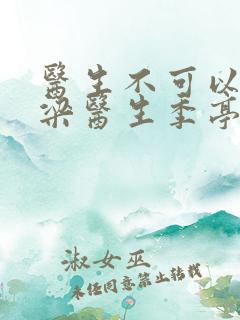 醫生不可以
梁醫生季亭
淑女巫
未經同意禁止轉載